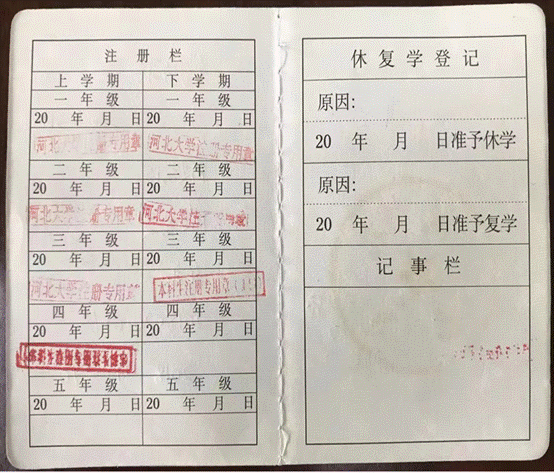 注册栏
上学期 下学期
一年级 一年级
20 年 月 日 20 年 月 日
河北大学注册专用章 河北大学注册专用章
二年级 二年级
20 年 月 日 20 年 月 日
河北大学注册专用章 河北大学注
三年级 三年级
20 年 月 日 20 年 月 日
河北大学注册专用章 本科生注册专用章
四年级 四年级
20 年 月 日 20 年 月 日
五年级 五年级
20 年 月 日 20 年 月 日
休复学登记
原因:
20 年 月 日准予休学
原因:
20 年 月 日准予复学
记事栏